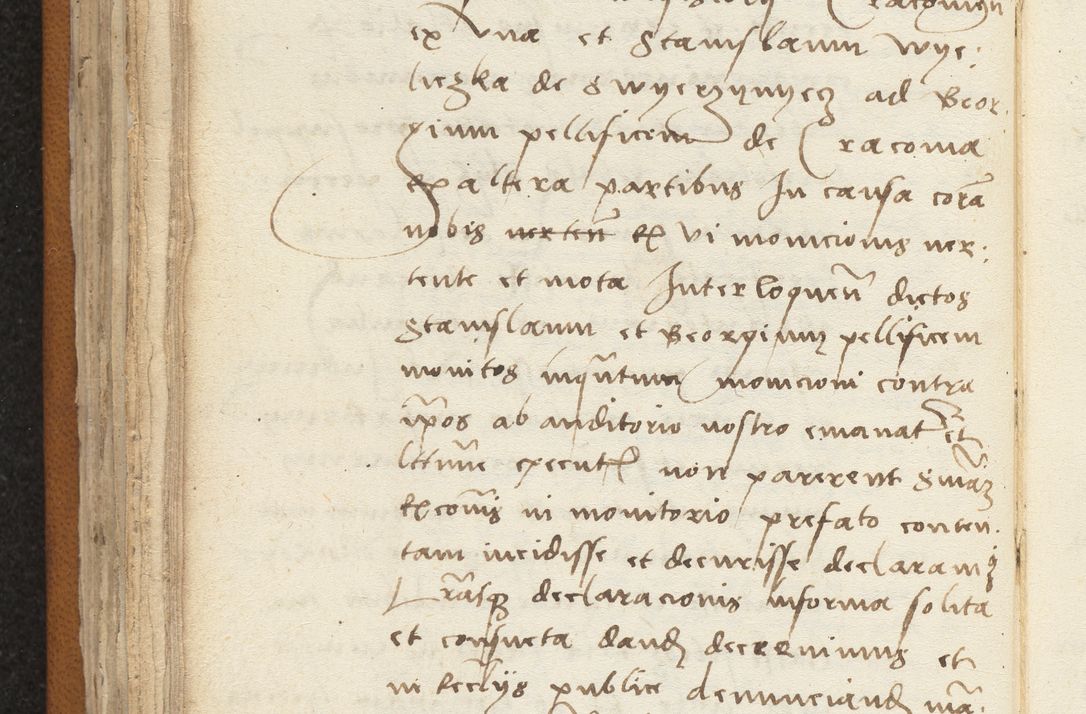 ex Vna et Stanislaum Wye:
liczka de Swyerzynyecz ad Geor:
gium pellificem de Cracovia
ex altera partibus In causa corā
nobis verteñ ex vi monicionis ver:
tente et mota Interloqueñ dictos
Stanislaum et Georgium pellificem
monitos inqñtum monicioni contra
ip̄os ab auditorio nostro emanat et
l̃time execut non parerent snīam
excoĩs in monitorio prefato conten:
tam incidisse et decurisse declaramꝰ
Lr̃asqꝫ declaracionis in forma solita
et consueta dand decrevimus et
in Eccl̃ijs publice denunciand mā: